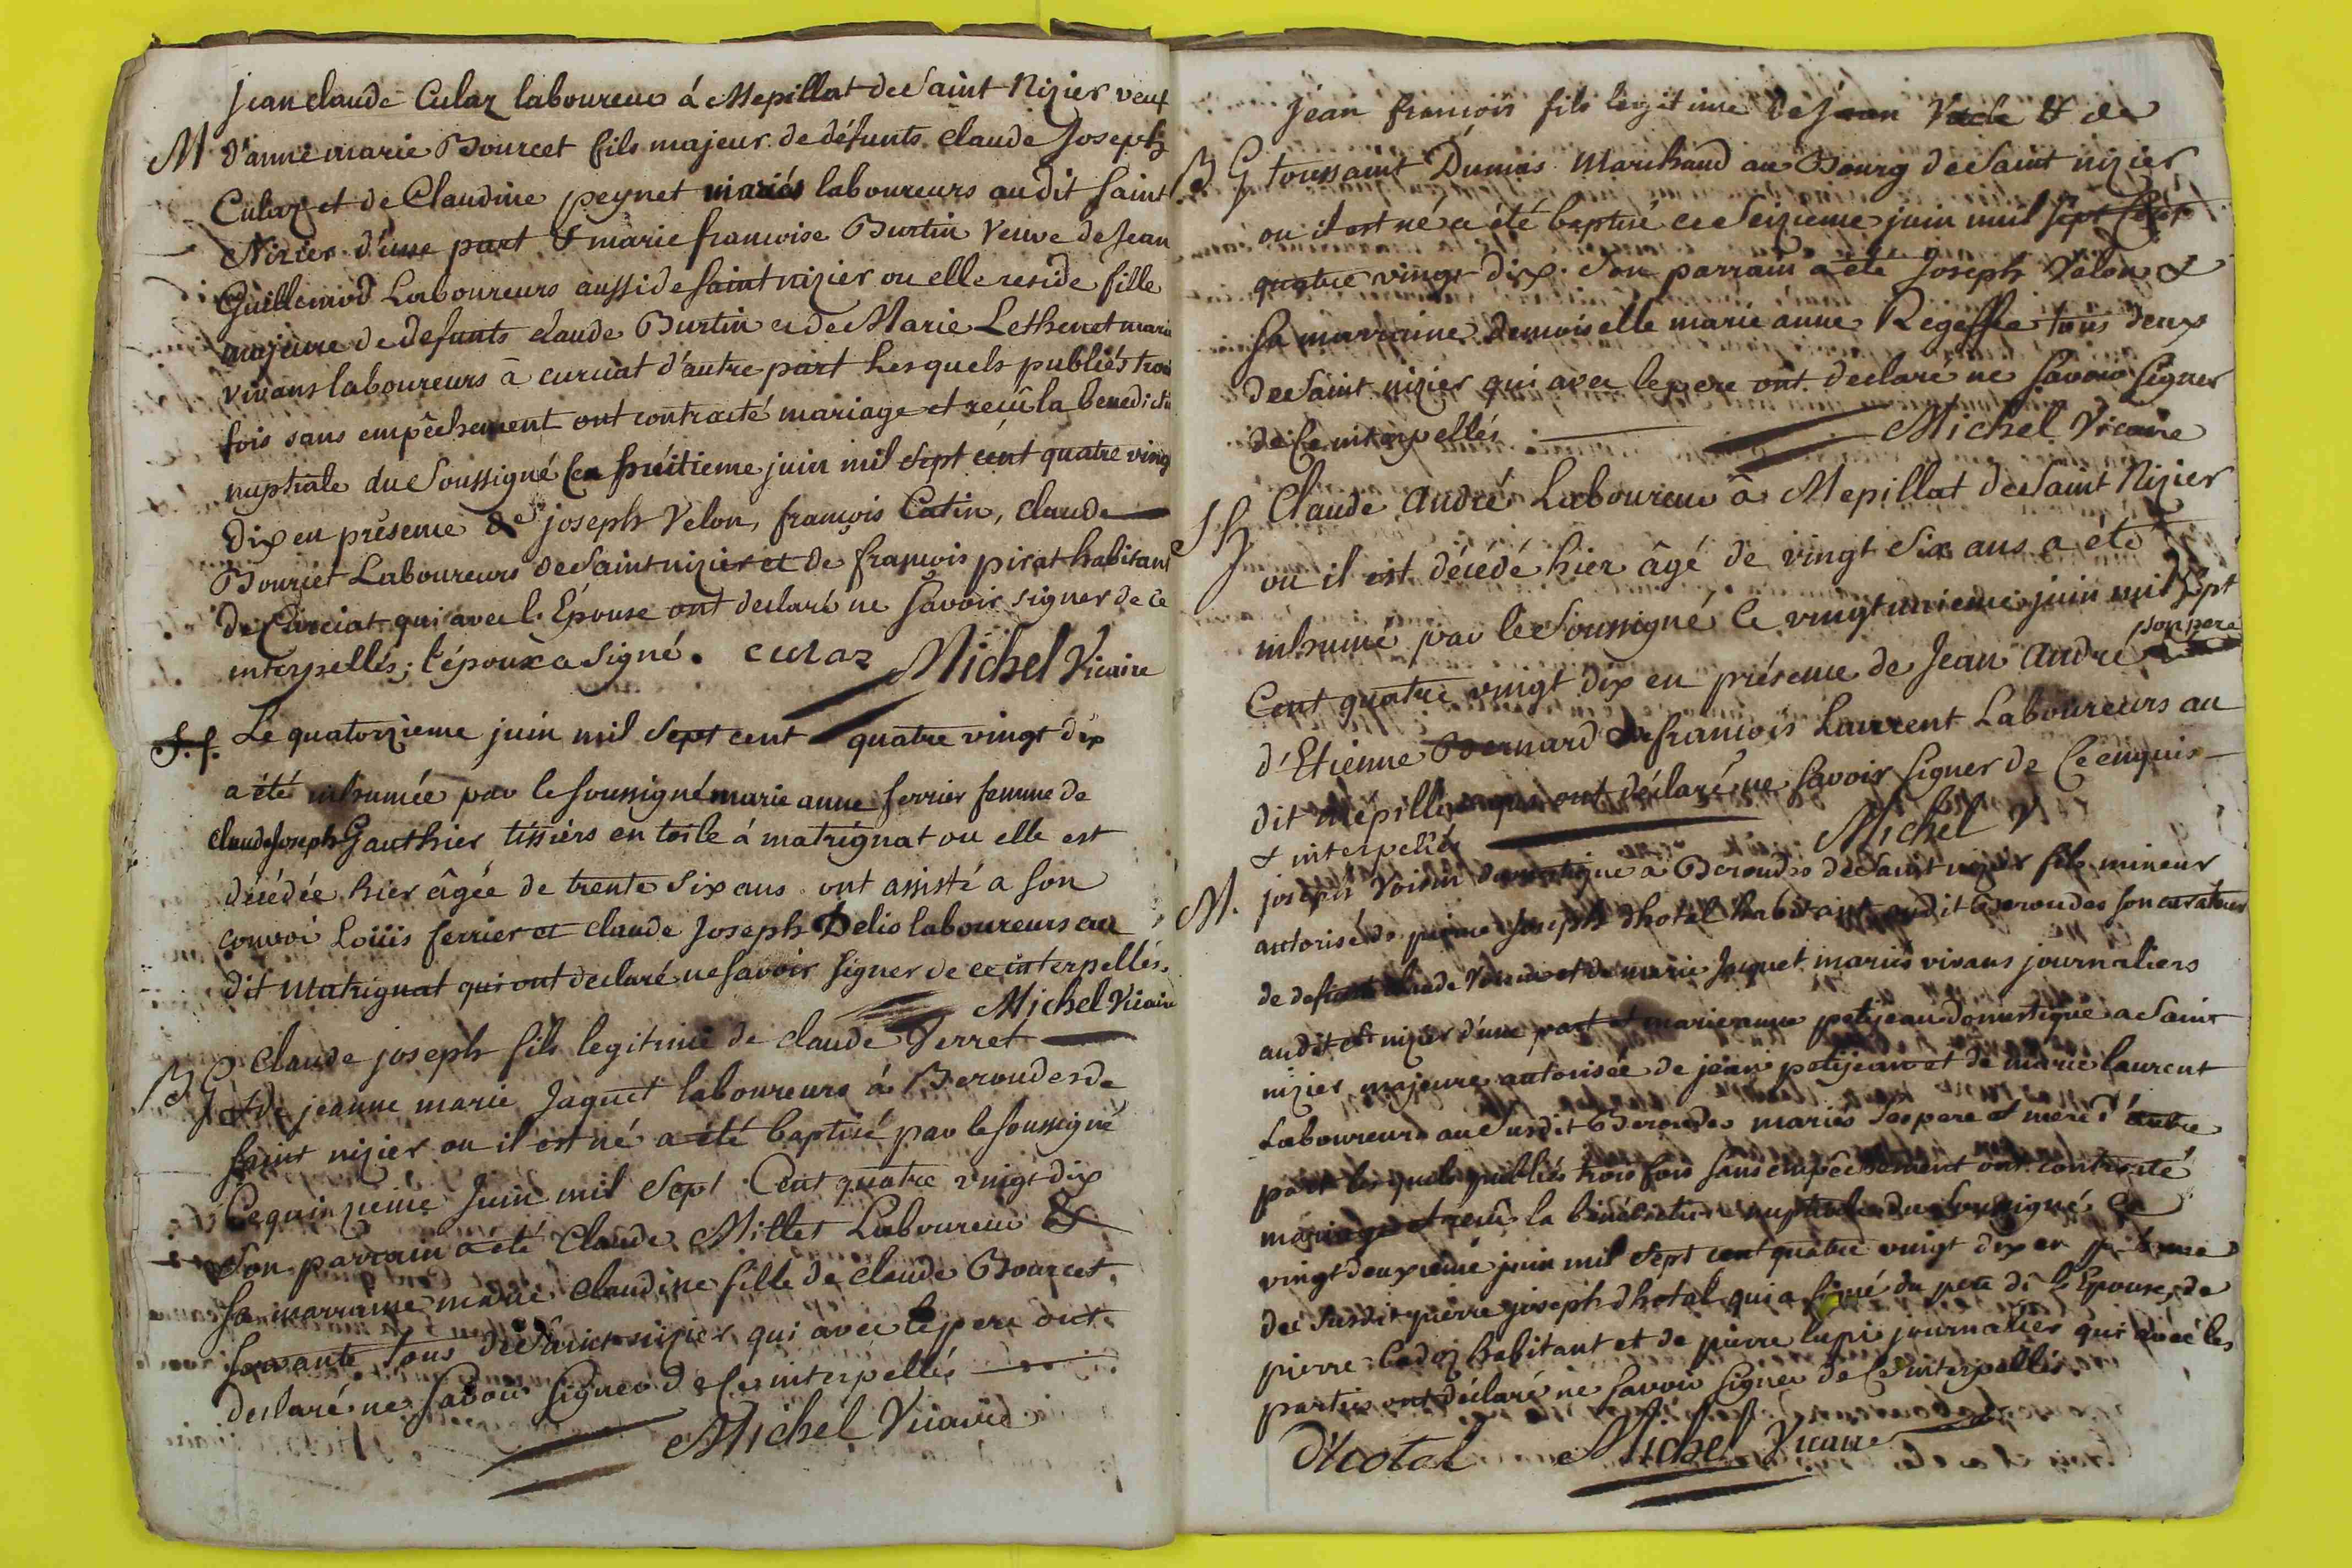 Jean claude Culaz laboureur á Mepillat de Saint Nizier veuf
M d'anne marie Bourcet fils majeur de défunts claude Joseph
Culaz et de Claudine peynet mariés laboureurs audit Saint
Nizier d'une part & marie francoise Burtin Veuve de Jean
Guillemod Laboureurs aussi de saint nizier ou elle reside fille
majeure de defunts claude Burtin et de Marie Lethenet marié
vivans laboureurs à curciat d'autre part Lesquels publiés trois
fois sans empêchement ont contracté mariage et reçu la benedictio
nuptiale du Soussigné Ce huitieme juin mil Sept cent quatre ving
dix en présence de joseph Velon, françois Catin, claude
Bourcet Laboureurs de Saint nizier et de françois pirat habitant
de Curciat qui avec l'Épouse ont declaré ne Savoir signer de ce
interpellés; l'époux a Signé. culaz Michel Vicaire
S.f. Le quatorzieme juin mil Sept cent quatre vingt dix
a été inhumée par le soussigné marie anne ferrier femme de
claude Joseph Gauthier tissiers en toile á matrignat ou elle est
décédée hier âgée de trente Six ans ont assisté a son
convoi Loüis ferrier et claude Joseph Delis laboureurs au
dit Matrignat qui ont declaré ne savoir signer de ce interpellés.
Michel Vicaire
B G Claude joseph fils legitime de claude Perret
& de jeanne marie Jaquet laboureurs á Beroudes de
saint nizier ou il est né a été baptisé par le soussigné
Ce quinzieme Juin mil Sept Cent quatre vingt dix
Son parrain a été Claude Millet Laboureur &
Sa marraine marie Claudine fille de claude Bourcet
servante tous de Saint nizier qui avec le pere ont
declaré ne savoir signer de Ce interpellés
Michel Vicaire
Jean francois fils legitime de Jean & de
B G toussaint Dumas Marchand au Bourg de Saint nizier
ou il est né a été baptisé ce Seizieme juin mil Sept Cent
quatre vingt dix. Son parrain a été Joseph Velon &
Sa marraine demoiselle marie anne Regeffe tous deux
de Saint nizier qui avec le pere ont declaré ne savoir signer
de Ce interpellés Michel Vicaire
S h Claude André Laboureur à Mepillat de Saint Nizier
ou il est décédé hier âgé de vingt Six ans a été
inhumé par le Soussigné le vingt unieme juin mil Sept
Cent quatre vingt dix en présence de Jean André son pere
d'Etienne Bernard & de francois Laurent Laboureurs au
dit Mépillat qui ont déclaré ne savoir signer de Ce enquis
& interpellés Michel V
M. joseph Voisin domestique a Beroudes de Saint nizier fils mineur
autorisé de pierre Joseph dhotel habitant audit Beroudes son curateur
de defunt claude Voisin et de marie Jaquet mariés vivans journaliers
audit St nizier d'une part & marie anne petijean domestique a Saint
nizier majeure autorisée de jean petijean et de marie laurent
Laboureurs au Susdit Beroudes mariés Ses pere & mere d'autre
part Lesquels publiés trois fois sans empêchement ont contracté
mariage et reçu la bénédiction nuptiale du Soussigné Ce
vingt deuxieme juin mil Sept cent quatre vingt dix en présence
du Susdit pierre joseph dhotel qui a signé du pere de l'Epouse, de
pierre habitant et de pierre lupi journalier qui avec les
parties ont déclaré ne savoir signer de Ce interpellés.
d'hotel Michel Vicaire